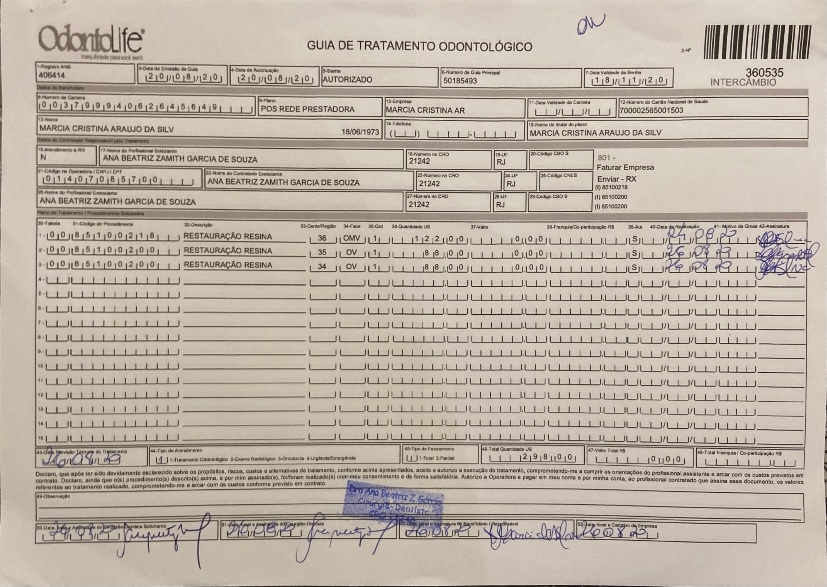 OdontoLife
GUIA DE TRATAMENTO ODONTOLÓGICO
2-Nº
360535
INTERCÂMBIO
1-Registro ANS
406414
3-Data de Emissão da Guia
20/08/20
4-Data de Autorização
20/08/20
5-Senha
AUTORIZADO
6-Número da Guia Principal
50185493
7-Data Validade da Senha
18/11/20
Dados do Beneficiário
8-Número da Carteira
00379994062645649
9-Plano
POS REDE PRESTADORA
10-Empresa
MARCIA CRISTINA AR
11-Data Validade da Carteira
12-Número do Cartão Nacional de Saúde
700002565001503
13-Nome
MARCIA CRISTINA ARAUJO DA SILV
18/06/1973
14-Telefone
15-Nome do titular do plano
MARCIA CRISTINA ARAUJO DA SILV
Dados do Contratado Responsável pelo Tratamento
16-Atendimento a RN
N
17-Nome do Profissional Solicitante
ANA BEATRIZ ZAMITH GARCIA DE SOUZA
18-Número no CRO
21242
19-UF
RJ
20-Código CBO S
801 -
Faturar Empresa
Enviar - RX
(I) 85100218
(I) 85100200
(I) 85100200
21-Código na Operadora / CNPJ / CPF
01407085700
22-Nome do Contratado Executante
ANA BEATRIZ ZAMITH GARCIA DE SOUZA
23-Número no CRO
21242
24-UF
RJ
25-Código CNES
26-Nome do Profissional Executante
ANA BEATRIZ ZAMITH GARCIA DE SOUZA
27-Número no CRO
21242
28-UF
RJ
29-Código CBO S
Plano de Tratamento / Procedimentos Solicitados
30-Tabela 31-Código do Procedimento 32-Descrição 33-Dente/Região 34-Face 35-Qtd 36-Quantidade US 37-Valor 38-Franquia/Co-participação R$ 39-Aut 40-Data de Realização 41-Motivo da Glosa 42-Assinatura
1- 00 85100218 RESTAURAÇÃO RESINA 36 OMV 1 122,00 0,00 S
2- 00 85100200 RESTAURAÇÃO RESINA 35 OV 1 88,00 0,00 S
3- 00 85100200 RESTAURAÇÃO RESINA 34 OV 1 88,00 0,00 S
4-
5-
6-
7-
8-
9-
10-
11-
12-
13-
14-
15-
43-Data Previsão Término do Tratamento
44-Tipo de Atendimento
1 1-Tratamento Odontológico 2-Exame Radiológico 3-Ortodontia 4-Urgência/Emergência
45-Tipo de Faturamento
1-Total 2-Parcial
46-Total Quantidade US
298,00
47-Valor Total R$
0,00
48-Total Franquia / Co-participação R$
Declaro, que após ter sido devidamente esclarecido sobre os propósitos, riscos, custos e alternativas de tratamento, conforme acima apresentados, aceito e autorizo a execução do tratamento, comprometendo-me a cumprir as orientações do profissional assistente e arcar com os custos previstos em
contrato. Declaro, ainda que o(s) procedimento(s) descrito(s) acima, e por mim assinado(s), foi/foram realizado(s) com meu consentimento e de forma satisfatória. Autorizo a Operadora a pagar em meu nome e por minha conta, ao profissional contratado que assina esse documento, os valores
referentes ao tratamento realizado, comprometendo-me a arcar com os custos conforme previsto em contrato.
49-Observação
Dra Ana Beatriz Z. Garcia
Cirurgiã-Dentista